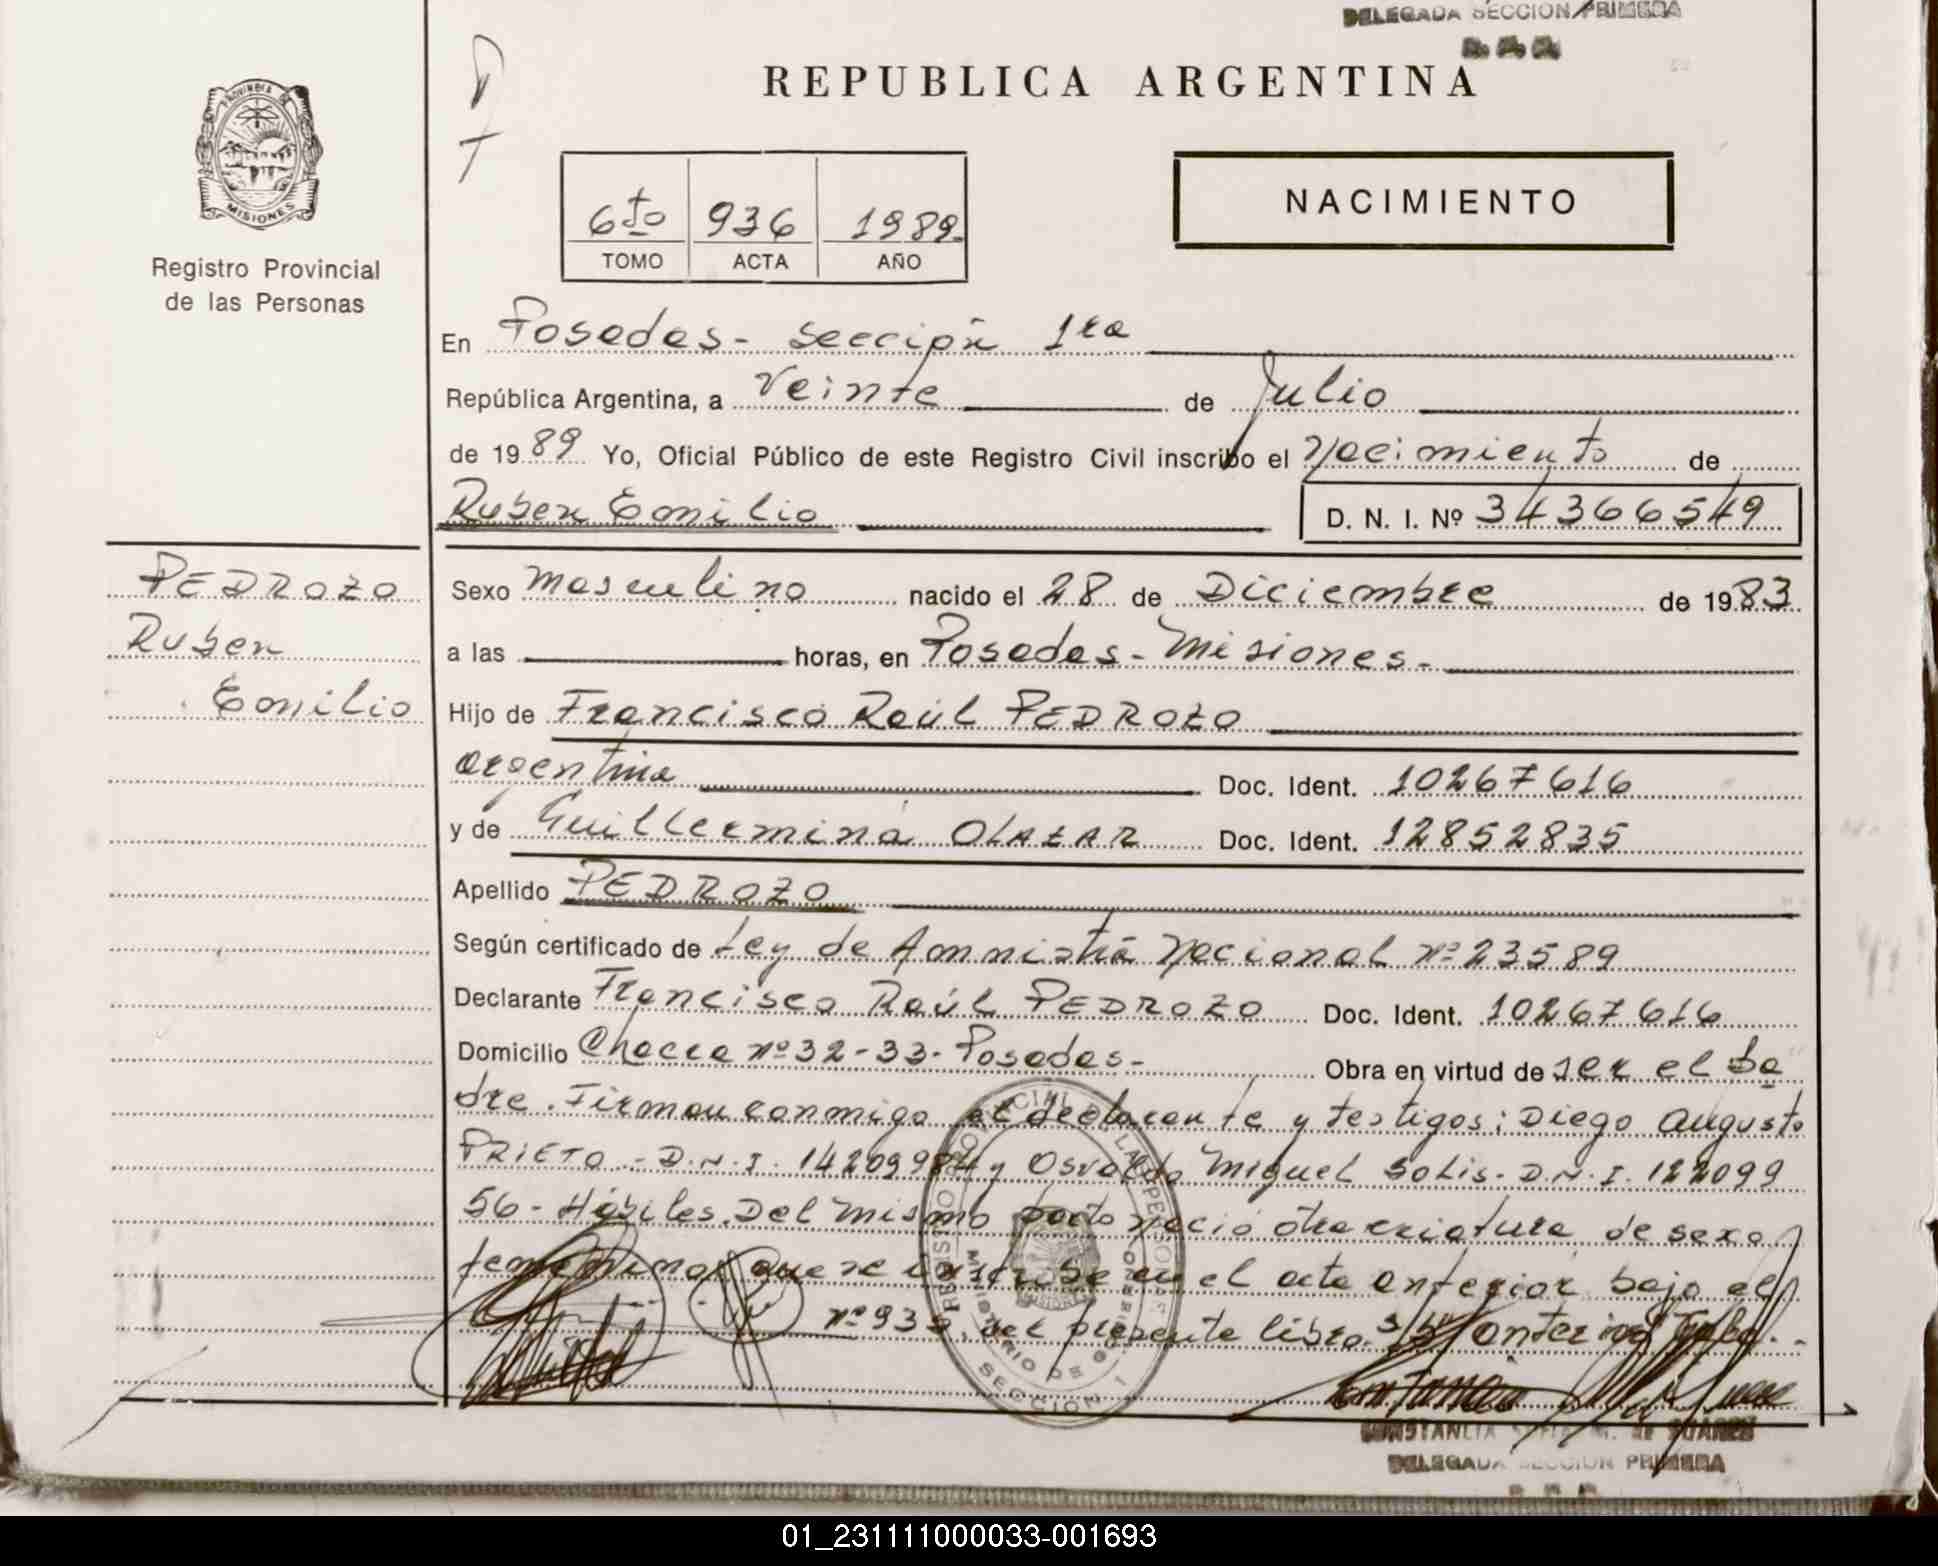 DELEGADA SECCION PRIMERA
REPUBLICA ARGENTINA
PROVINCIA DE
MISIONES
Registro Provincial
de las Personas
6to 936 1989
TOMO ACTA AÑO
NACIMIENTO
En Posadas - Sección 1ra
República Argentina, a Veinte de Julio
de 1989 Yo, Oficial Público de este Registro Civil inscribo el Nacimiento de
Ruben Emilio D. N. I. Nº 34366549
PEDROZO
Ruben
Emilio
Sexo Masculino nacido el 28 de Diciembre de 1983
a las horas, en Posadas - Misiones.
Hijo de Francisco Raúl PEDROZO
argentina Doc. Ident. 10267616
y de Guillermina OLAZAR Doc. Ident. 12852835
Apellido PEDROZO
Según certificado de Ley de Amnistía Nacional nº 23589
Declarante Francisco Raúl PEDROZO Doc. Ident. 10267616
Domicilio Chacra nº 32-33- Posadas- Obra en virtud de ser el Pa
dre. Firman conmigo el declarante y testigos: Diego Augusto
PRIETO - D.N.I. 14209984 y Osvaldo Miguel SOLIS - D.N.I. 122099
56 - Hábiles. Del mismo parto nació otra criatura de sexo
femenino que se inscribe en el acta anterior bajo el
nº 935 del presente libro.
REGISTRO PROVINCIAL DE LAS PERSONAS
MINISTERIO DE GOBIERNO
SECCION 1
CONSTANCIA M. de SUAREZ
DELEGADA SECCION PRIMERA
01_231111000033-001693